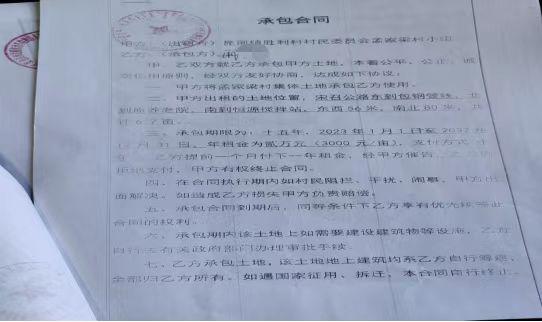 承包合同
甲方（出租方）昆河镇胜利村村民委员会孟家梁村小组
乙方（承包方）
甲、乙双方就乙方承包甲方土地，本着公平、公正、诚
实信用原则，经双方友好协商，达成如下协议：
一、甲方将孟家梁村集体土地承包乙方使用。
二、甲方出租的土地位置，东召公路东到包钢管线，北
到原养老院，南到恒源搅拌站，东西56米，南北80米，共
计6.7亩。
三、承包期限为：十五年，2023年1月1日至2037年
12月31日。年租金为贰万元（3000元/亩），支付方式
乙方提前一个月付下一年租金，经甲方催告，乙方
拒绝支付，甲方有权终止合同。
四、在合同执行期内如村民阻拦、干扰、闹事，甲方出
面解决。如造成乙方损失甲方负责赔偿。
五、承包合同到期后，同等条件下乙方享有优先续签此
合同的权利。
六、承包期内该土地上如需要建设建筑物等设施，乙方
自行去有关政府部门办理审批手续。
七、乙方承包土地，该土地地上建筑均系乙方自行筹建，
全部归乙方所有。如遇国家征用、拆迁，本合同自行终止。